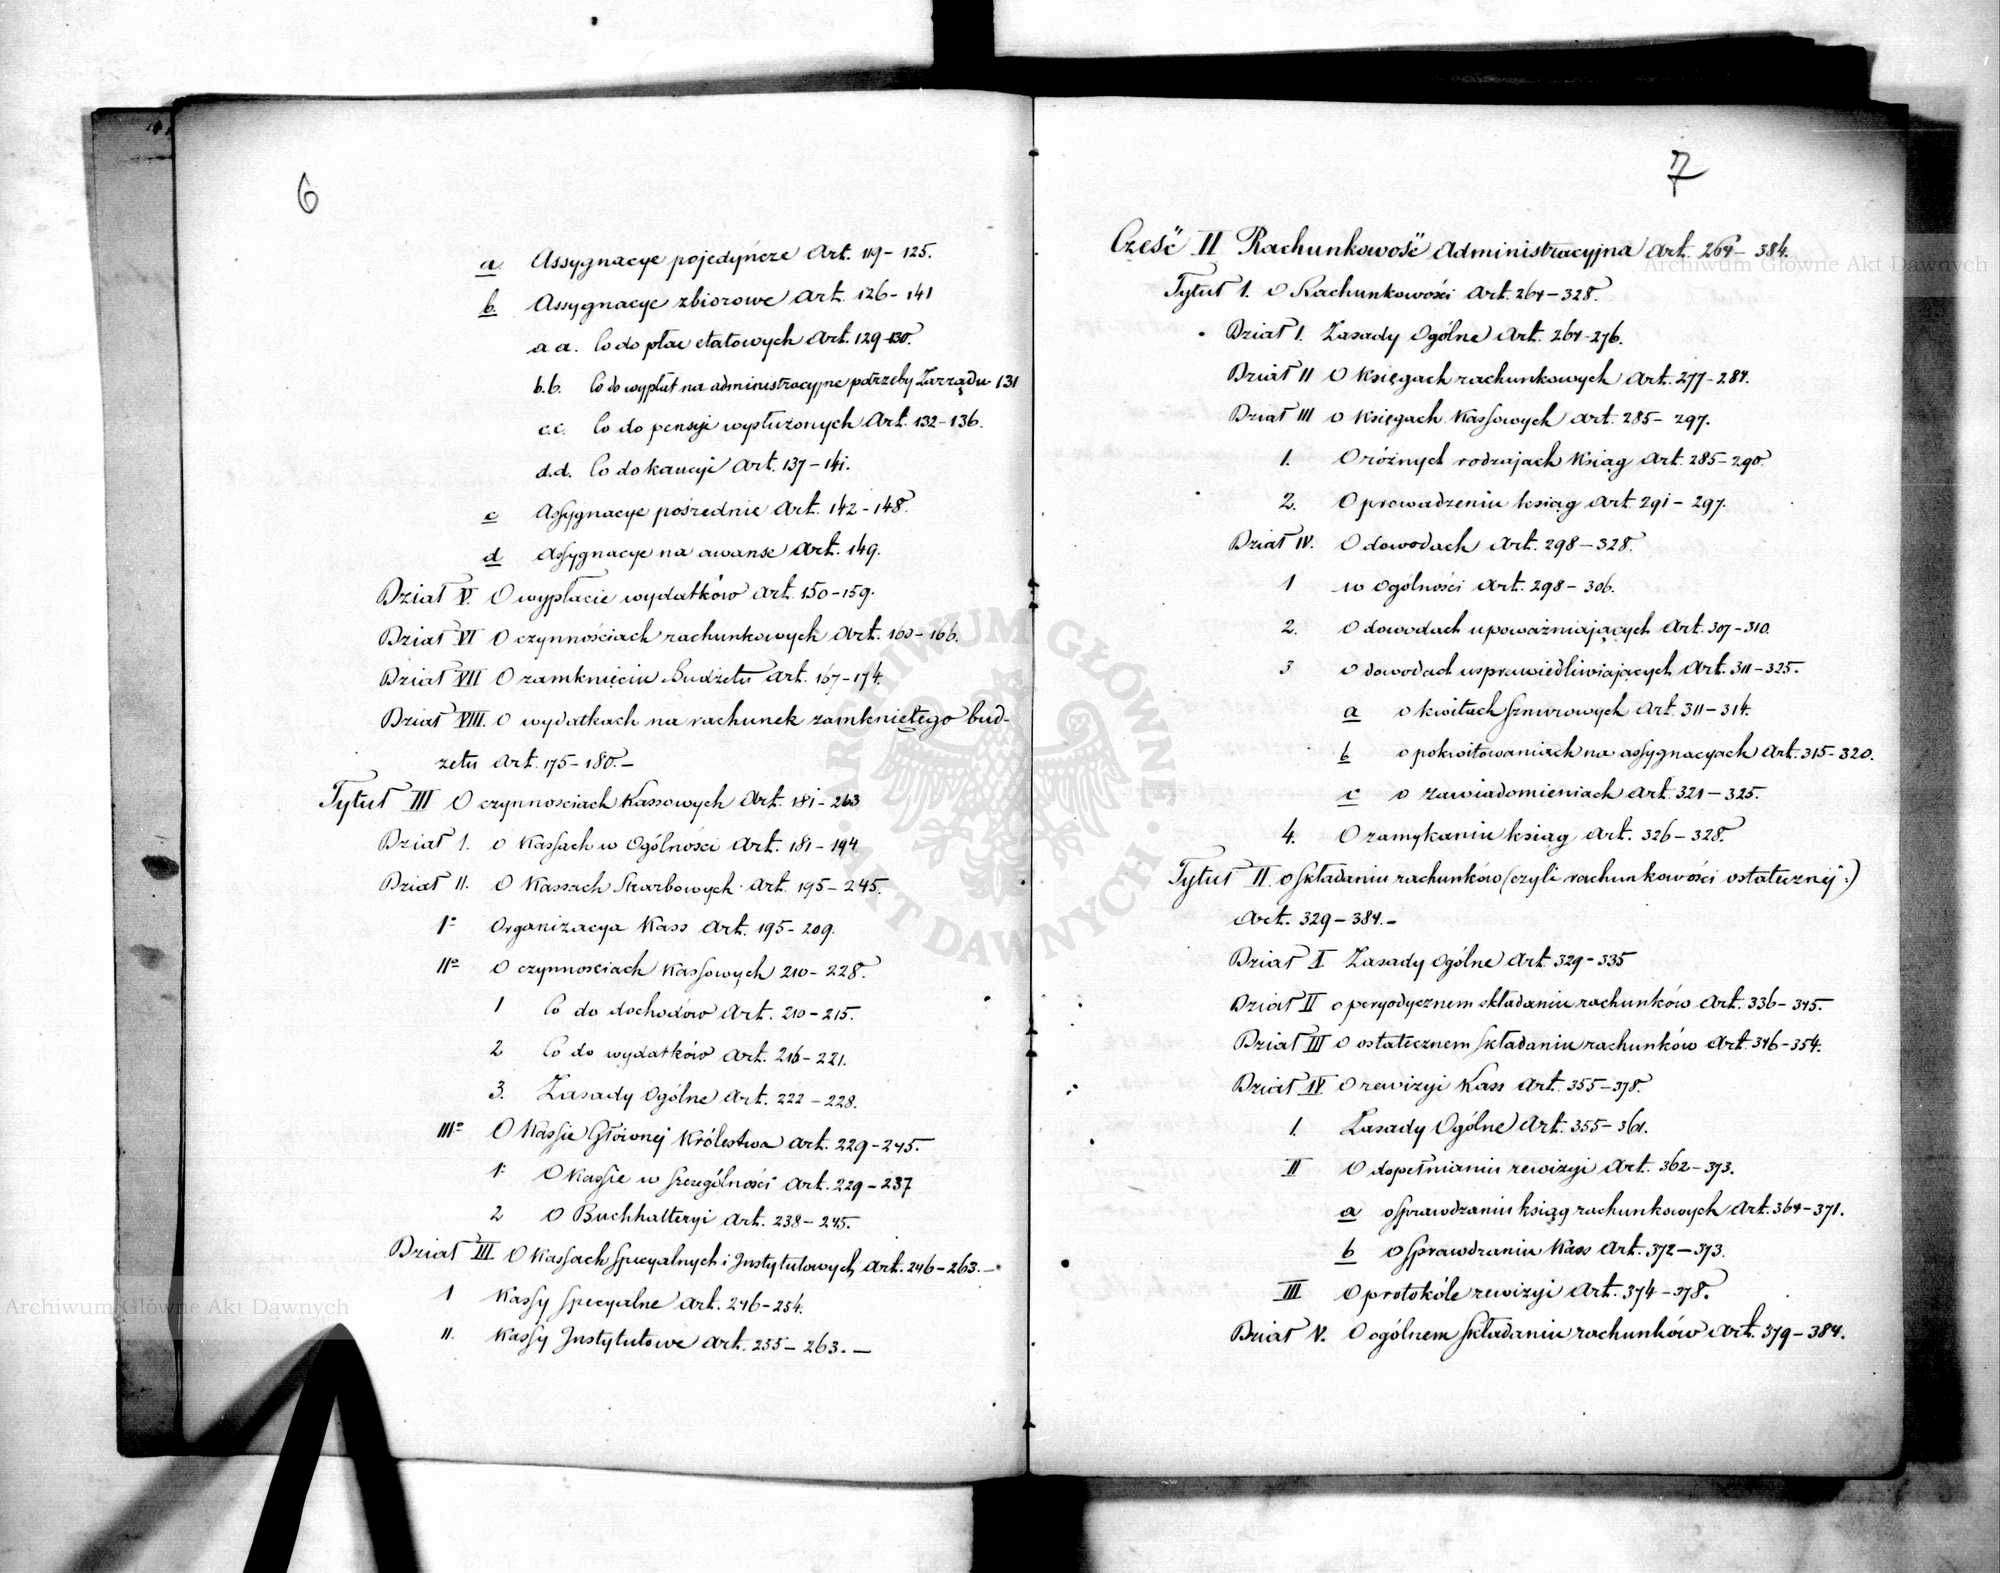 6
a Assygnacye pojedyńcze Art. 119 – 125.
b. Assygnacye zbiorowe Art. 126 – 141
a a. Co do płac etatowych Art. 129-130.
b.b. Co do wypłat na administracyjne potrzeby Zarządu 131
c.c. Co do pensyi wysłużonych Art. 132–136.
d.d. Co do kaucyi Art. 137–141.
c Assygnacye pośrednie Art. 142–148.
d Assygnacye na awanse Art. 149.
Dział V. O wypłacie wydatków Art. 150–159.
Dział VI O czynnościach rachunkowych Art. 160–166.
Dział VII O zamknięciu Budżetu Art. 167–174.
Dział VIII. O wydatkach na rachunek zamkniętego bud-
żetu Art. 175–180.–
Tytuł III O czynnosciach Kassowych Art. 181–263
Dział 1. O Kassach w Ogólności Art. 181–194
Dział II. O Kassach Skarbowych Art. 195–245.
1º Organizacya Kass Art. 195–209.
IIº O czynnosciach Kassowych 210–228.
1 Co do dochodów Art. 210–215.
2 Co do wydatków Art. 216–221.
3. Zasady Ogólne Art. 222–228.
IIIº O Kassie Głównej Królestwa Art. 229–245.
1º O Kassie w Szczególności Art. 229–237
2 O Buchhalteryi Art. 238–245.
Dział III. O Kassach Specyalnych i Instytutowych Art. 246–263.–
1 Kassy Specyalne Art. 246–254.
II. Kassy Instytutowe Art. 255–263.–
7
Cześć II Rachunkowość Administracyjna Art. 264–384.
Tytuł 1. O Rachunkowości Art. 264–328.
Dział 1. Zasady Ogólne Art. 264-276.
Dział II O Księgach rachunkowych Art. 277–284.
Dział III O Księgach Kassowych Art. 285–297.
1. O różnych rodzajach Ksiąg Art. 285–290.
2. O prowadzeniu ksiąg Art 291–297.
Dział IV. O dowodach Art. 298–328.
1 w Ogólności Art. 298–306.
2. O dowodach upoważniających Art. 307–310.
3 O dowodach usprawiedliwiających Art. 311–325.
a o kwitach Sznurowych Art. 311–314.
b o pokwitowaniach na assygnacyach Art. 315–320.
c o zawiadomieniach Art. 321–325.
4. O zamykaniu ksiąg Art. 326–328.
Tytuł II. o Składaniu rachunków (czyli rachunkowości ostatecznej.)
Art. 329–384.–
Dział I Zasady Ogólne Art. 329–335
Dział II o peryodycznem składaniu rachunków Art. 336–345.
Dział III O ostatecznem Składaniu rachunków Art. 346–354.
Dział IV. O rewizyi Kass Art. 355–378.
1. Zasady Ogólne Art. 355–361.
II O dopełnianiu rewizyi Art. 362–373.
a o Sprawdzaniu ksiąg rachunkowych Art. 364–371.
b o Sprawdzaniu Kass Art. 372–373.
III O protokóle rewizyi Art. 374–378.
Dział V. O ogólnem Składaniu rachunków Art. 379–384.
Archiwum Główne Akt Dawnych
Archiwum Główne Akt Dawnych
ARCHIWUM GŁÓWNE AKT DAWNYCH